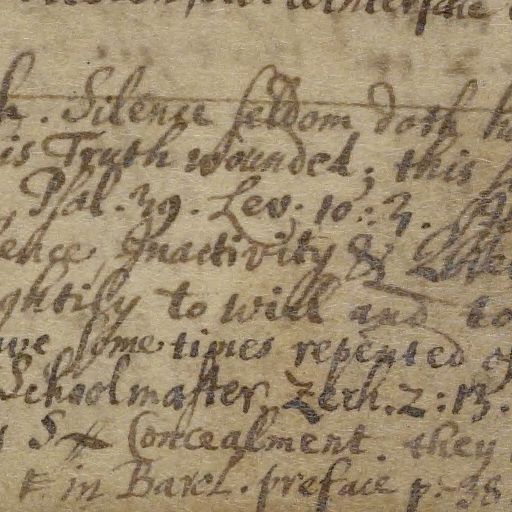 h. Silence seldom doth
is Truth wounded; this
Psal. 39. Lev. 10:3.
ence, Inactivity &
ghtily to will and to
ve sometimes repented
Schoolmaster, Zech. 2:13.
Concealment. they
in Barcl. preface p. 38